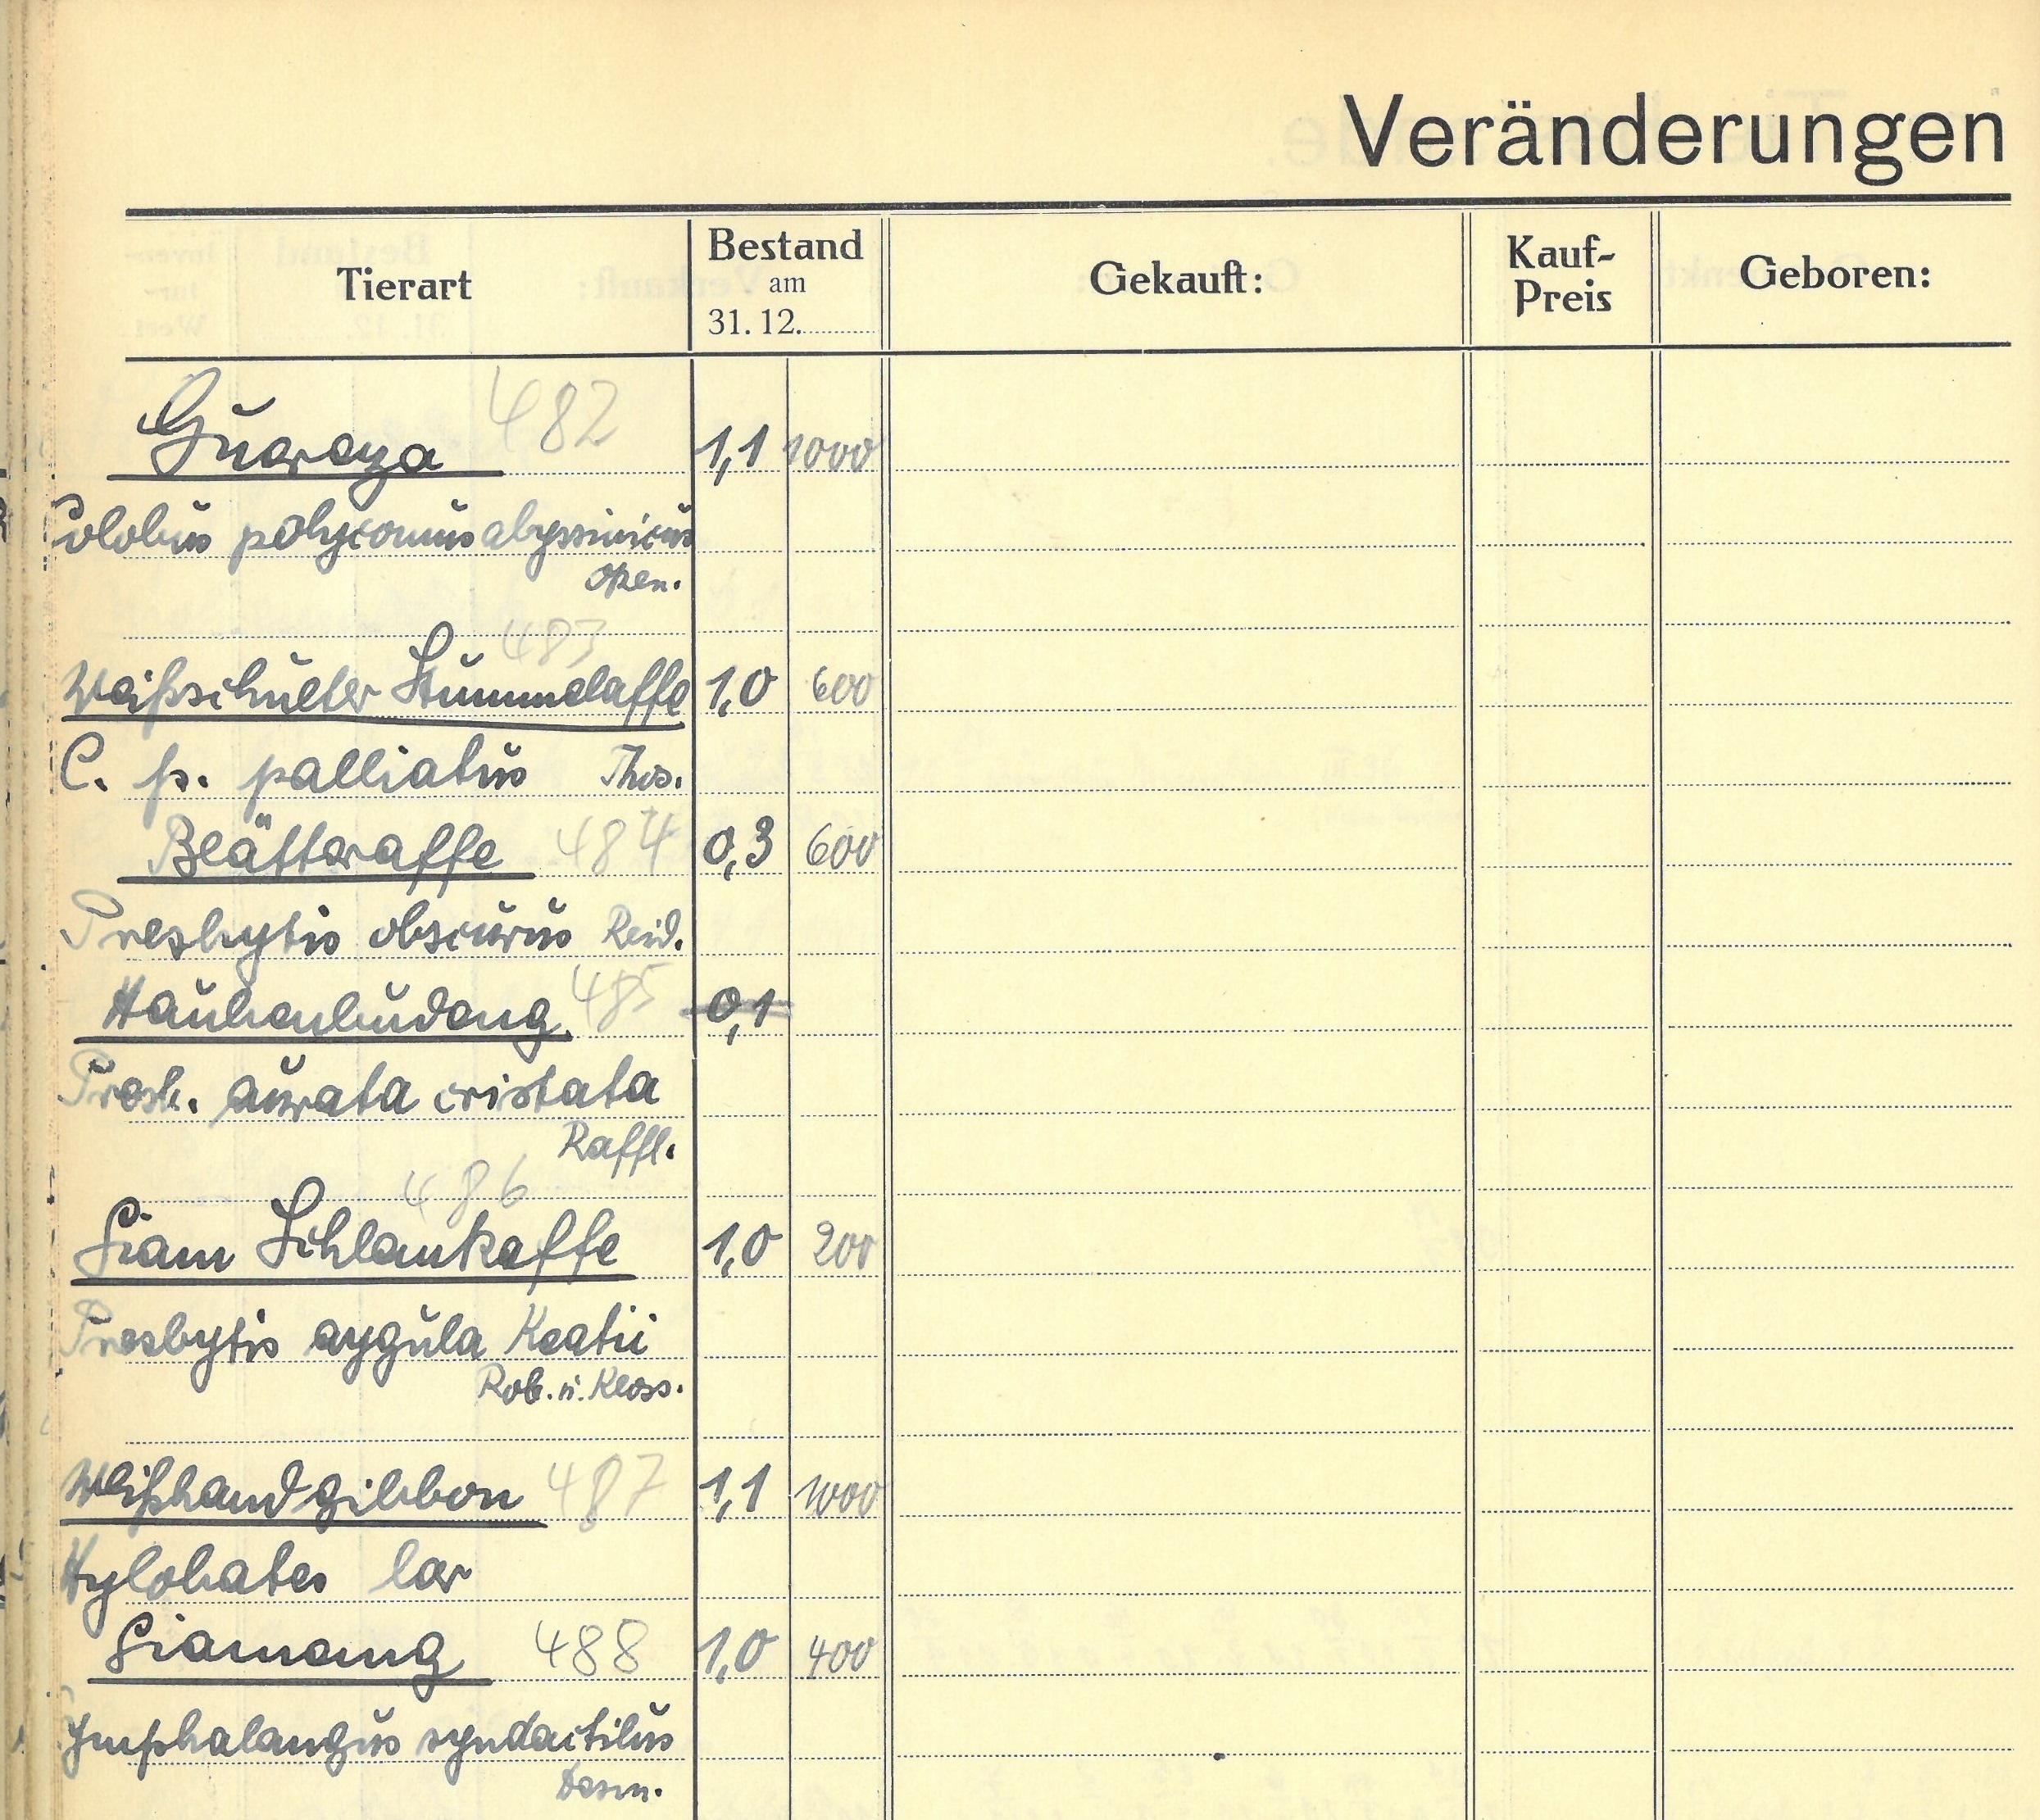 Veränderungen
Tierart Bestand am 31. 12. Gekauft: Kauf-Preis Geboren:
Guereza 482 1,1 1000
Colobus polycomus abyssinicus
Oken.
483
Weißschulter Stummelaffe 1,0 600
C. p. palliatus Thos.
Blätteraffe 484 0,3 600
Presbytis obscurus Reid.
Haubenbudeng. 485 0,1
Presb. aurata cristata
Raffl.
486
Siam Schlankaffe 1,0 200
Presbytis aygula Keatii
Rob. u. Kloss.
Weißhandgibbon 487 1,1 1000
Hylobates lar
Siamang 488 1,0 400
Symphalangus syndactilus
Desm.